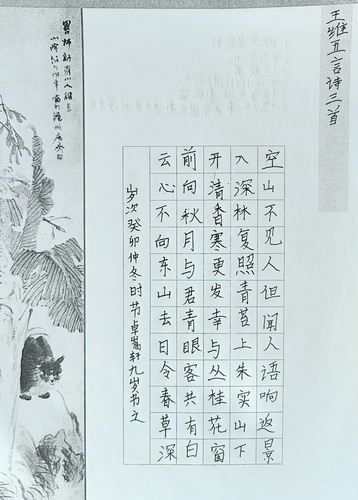 王维五言诗三首
空山不见人但闻人语响返景
入深林复照青苔上朱实山下
开清香寒更发幸与丛桂花窗
前向秋月与君青眼客共有白
云心不向东山去日令春草深
岁次癸卯仲冬时节卓嵩轩九岁书之